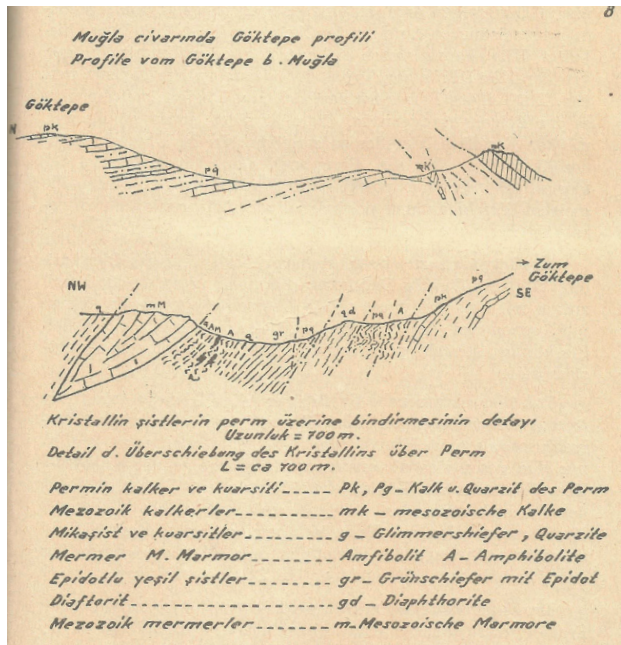 8
Muğla civarında Göktepe profili
Profile vom Göktepe b. Muğla
Göktepe
N pk
pq
mk
mk
→ Zum
Göktepe
NW
SE
g mM
A g gr pq qd pq A pk pq
Kristallin şistlerin perm üzerine bindirmesinin detayı
Uzunluk = 700 m.
Detail d. Überschiebung des Kristallins über Perm
L = ca 700 m.
Permin kalker ve kuarsiti_____ Pk, Pg_ Kalk u. Quarzit des Perm
Mezozoik kalkerler_______ mk_ mesozoische Kalke
Mikaşist ve kuarsitler_____ g_ Glimmershiefer, Quarzite
Mermer M. Marmor_______ Amfibolit A_ Amphibolite
Epidotlu yeşil şistler______ gr_ Grünschiefer mit Epidot
Diaftorit______________ gd_ Diaphthorite
Mezozoik mermerler______ m_Mesozoische Marmore